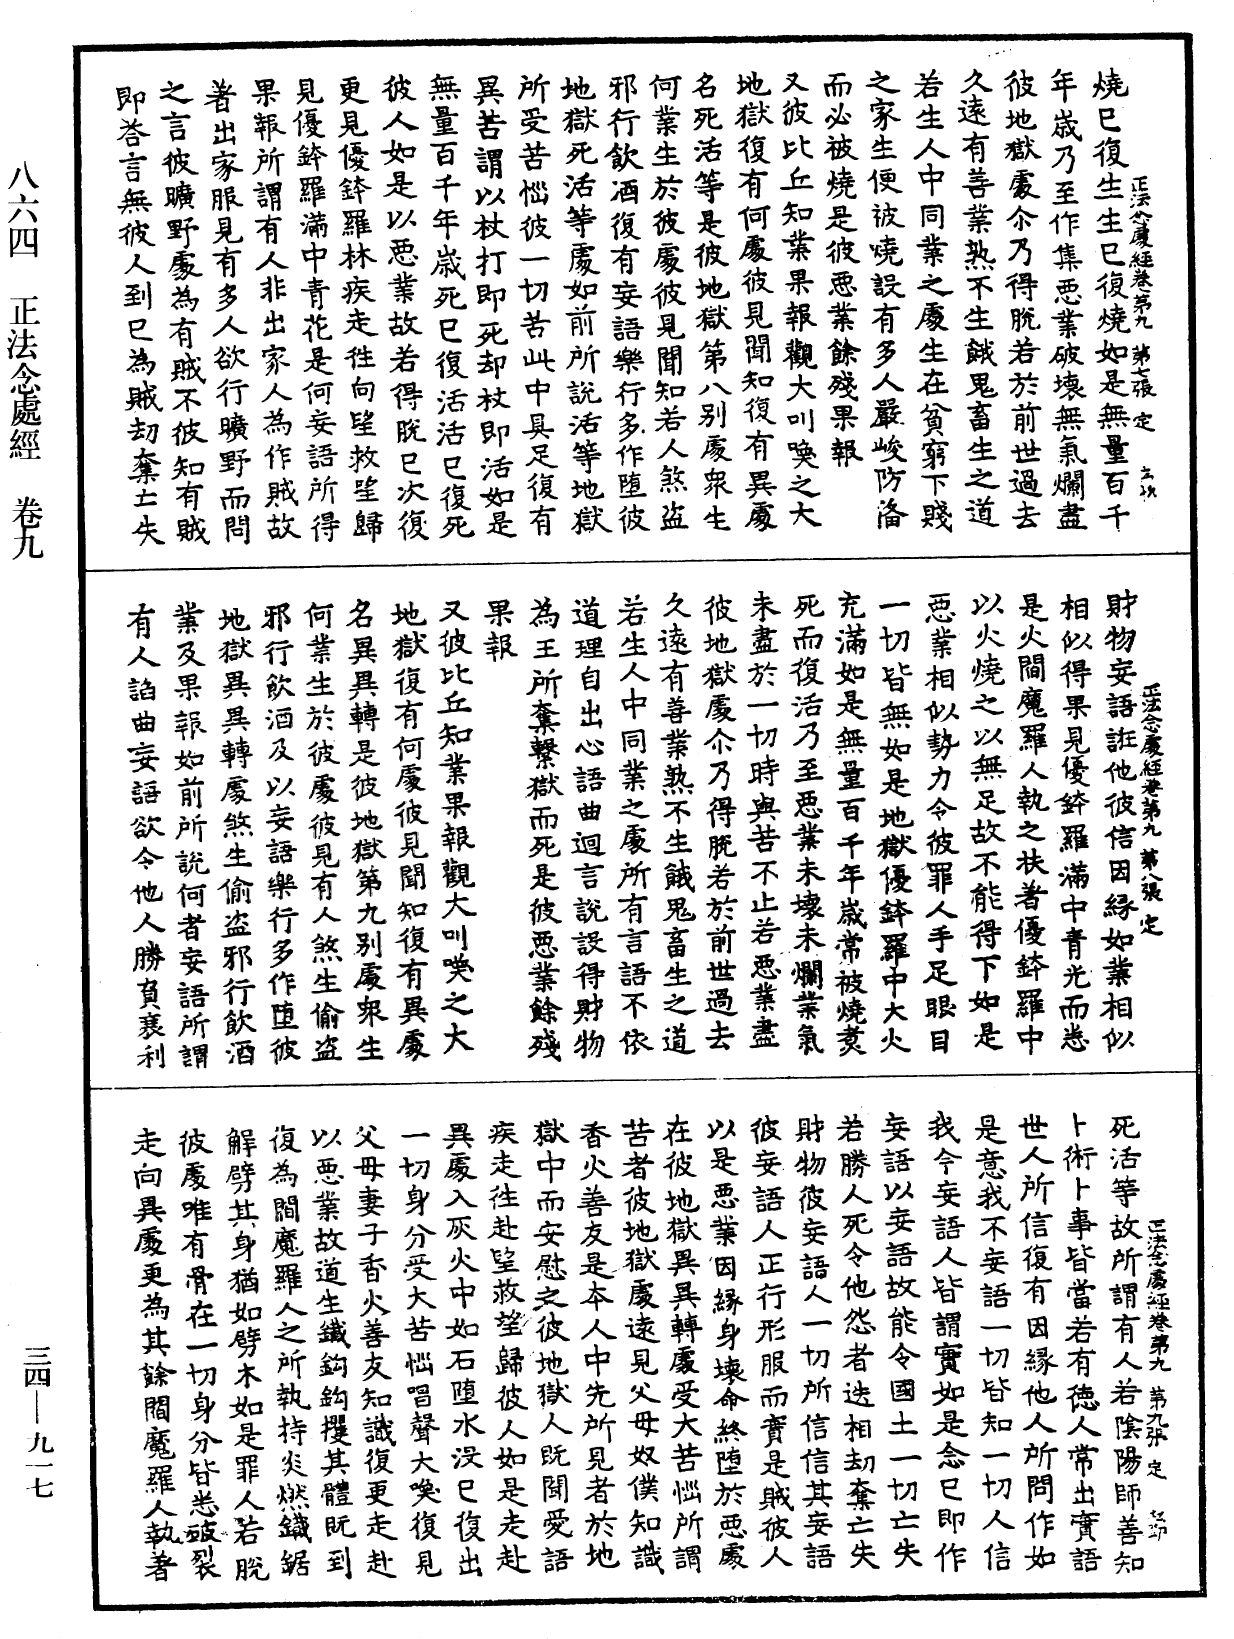 八六四 正法念處經 卷九
三四—九一七
正法念處經卷第九 第七張 定
燒已復生生已復燒如是無量百千
年歲乃至作集惡業破壞無氣爛盡
彼地獄處尒乃得脫若於前世過去
久遠有善業熟不生餓鬼畜生之道
若生人中同業之處生在貧窮下賤
之家生便被燒設有多人嚴峻防俻
而必被燒是彼惡業餘殘果報
又彼比丘知業果報觀大叫喚之大
地獄復有何處彼見聞知復有異處
名死活等是彼地獄第八別處衆生
何業生於彼處彼見聞知若人煞盜
邪行飲酒復有妄語樂行多作墮彼
地獄死活等處如前所說活等地獄
所受苦惱彼一切苦此中具足復有
異苦謂以杖打即死却杖即活如是
無量百千年歲死已復活活已復死
彼人如是以惡業故若得脫已次復
更見優鉢羅林疾走往向望救望歸
見優鉢羅滿中青花是何妄語所得
果報所謂有人非出家人為作賊故
著出家服見有多人欲行曠野而問
之言彼曠野處為有賊不彼知有賊
即荅言無彼人到已為賊劫奪亡失
正法念處經卷第九 第八張 定
財物妄語誑他彼信因緣如業相似
相似得果見優鉢羅滿中青光而悉
是火閻魔羅人執之扶著優鉢羅中
以火燒之以無足故不能得下如是
惡業相似勢力令彼罪人手足眼目
一切皆無如是地獄優鉢羅中大火
充滿如是無量百千年歲常被燒煮
死而復活乃至惡業未壞未爛業氣
未盡於一切時與苦不止若惡業盡
彼地獄處尒乃得脫若於前世過去
久遠有善業熟不生餓鬼畜生之道
若生人中同業之處所有言語不依
道理自出心語曲迴言說設得財物
為王所奪繫獄而死是彼惡業餘殘
果報
又彼比丘知業果報觀大叫喚之大
地獄復有何處彼見聞知復有異處
名異異轉是彼地獄第九別處衆生
何業生於彼處彼見有人煞生偷盜
邪行飲酒及以妄語樂行多作墮彼
地獄異異轉處煞生偷盜邪行飲酒
業及果報如前所說何者妄語所謂
有人諂曲妄語欲令他人勝負衰利
正法念處經卷第九 第九張 定
死活等故所謂有人若陰陽師善知
卜術卜事皆當若有德人常出實語
世人所信復有因緣他人所問作如
是意我不妄語一切皆知一切人信
我今妄語人皆謂實如是念已即作
妄語以妄語故能令國土一切亡失
若勝人死令他怨者迭相劫奪亡失
財物彼妄語人一切所信信其妄語
彼妄語人正行形服而實是賊彼人
以是惡業因緣身壞命終墮於惡處
在彼地獄異異轉處受大苦惱所謂
苦者彼地獄處遠見父母奴僕知識
香火善友是本人中先所見者於地
獄中而安慰之彼地獄人既聞愛語
疾走往赴望救望歸彼人如是走赴
異處入灰火中如石墮水沒已復出
一切身分受大苦惱唱聲大喚復見
父母妻子香火善友知識復更走赴
以惡業故道生鐵鈎鈎攫其體既到
復為閻魔羅人之所執持炎燃鐵鋸
解劈其身猶如劈木如是罪人若脫
彼處唯有骨在一切身分皆悉破裂
走向異處更為其餘閻魔羅人執著